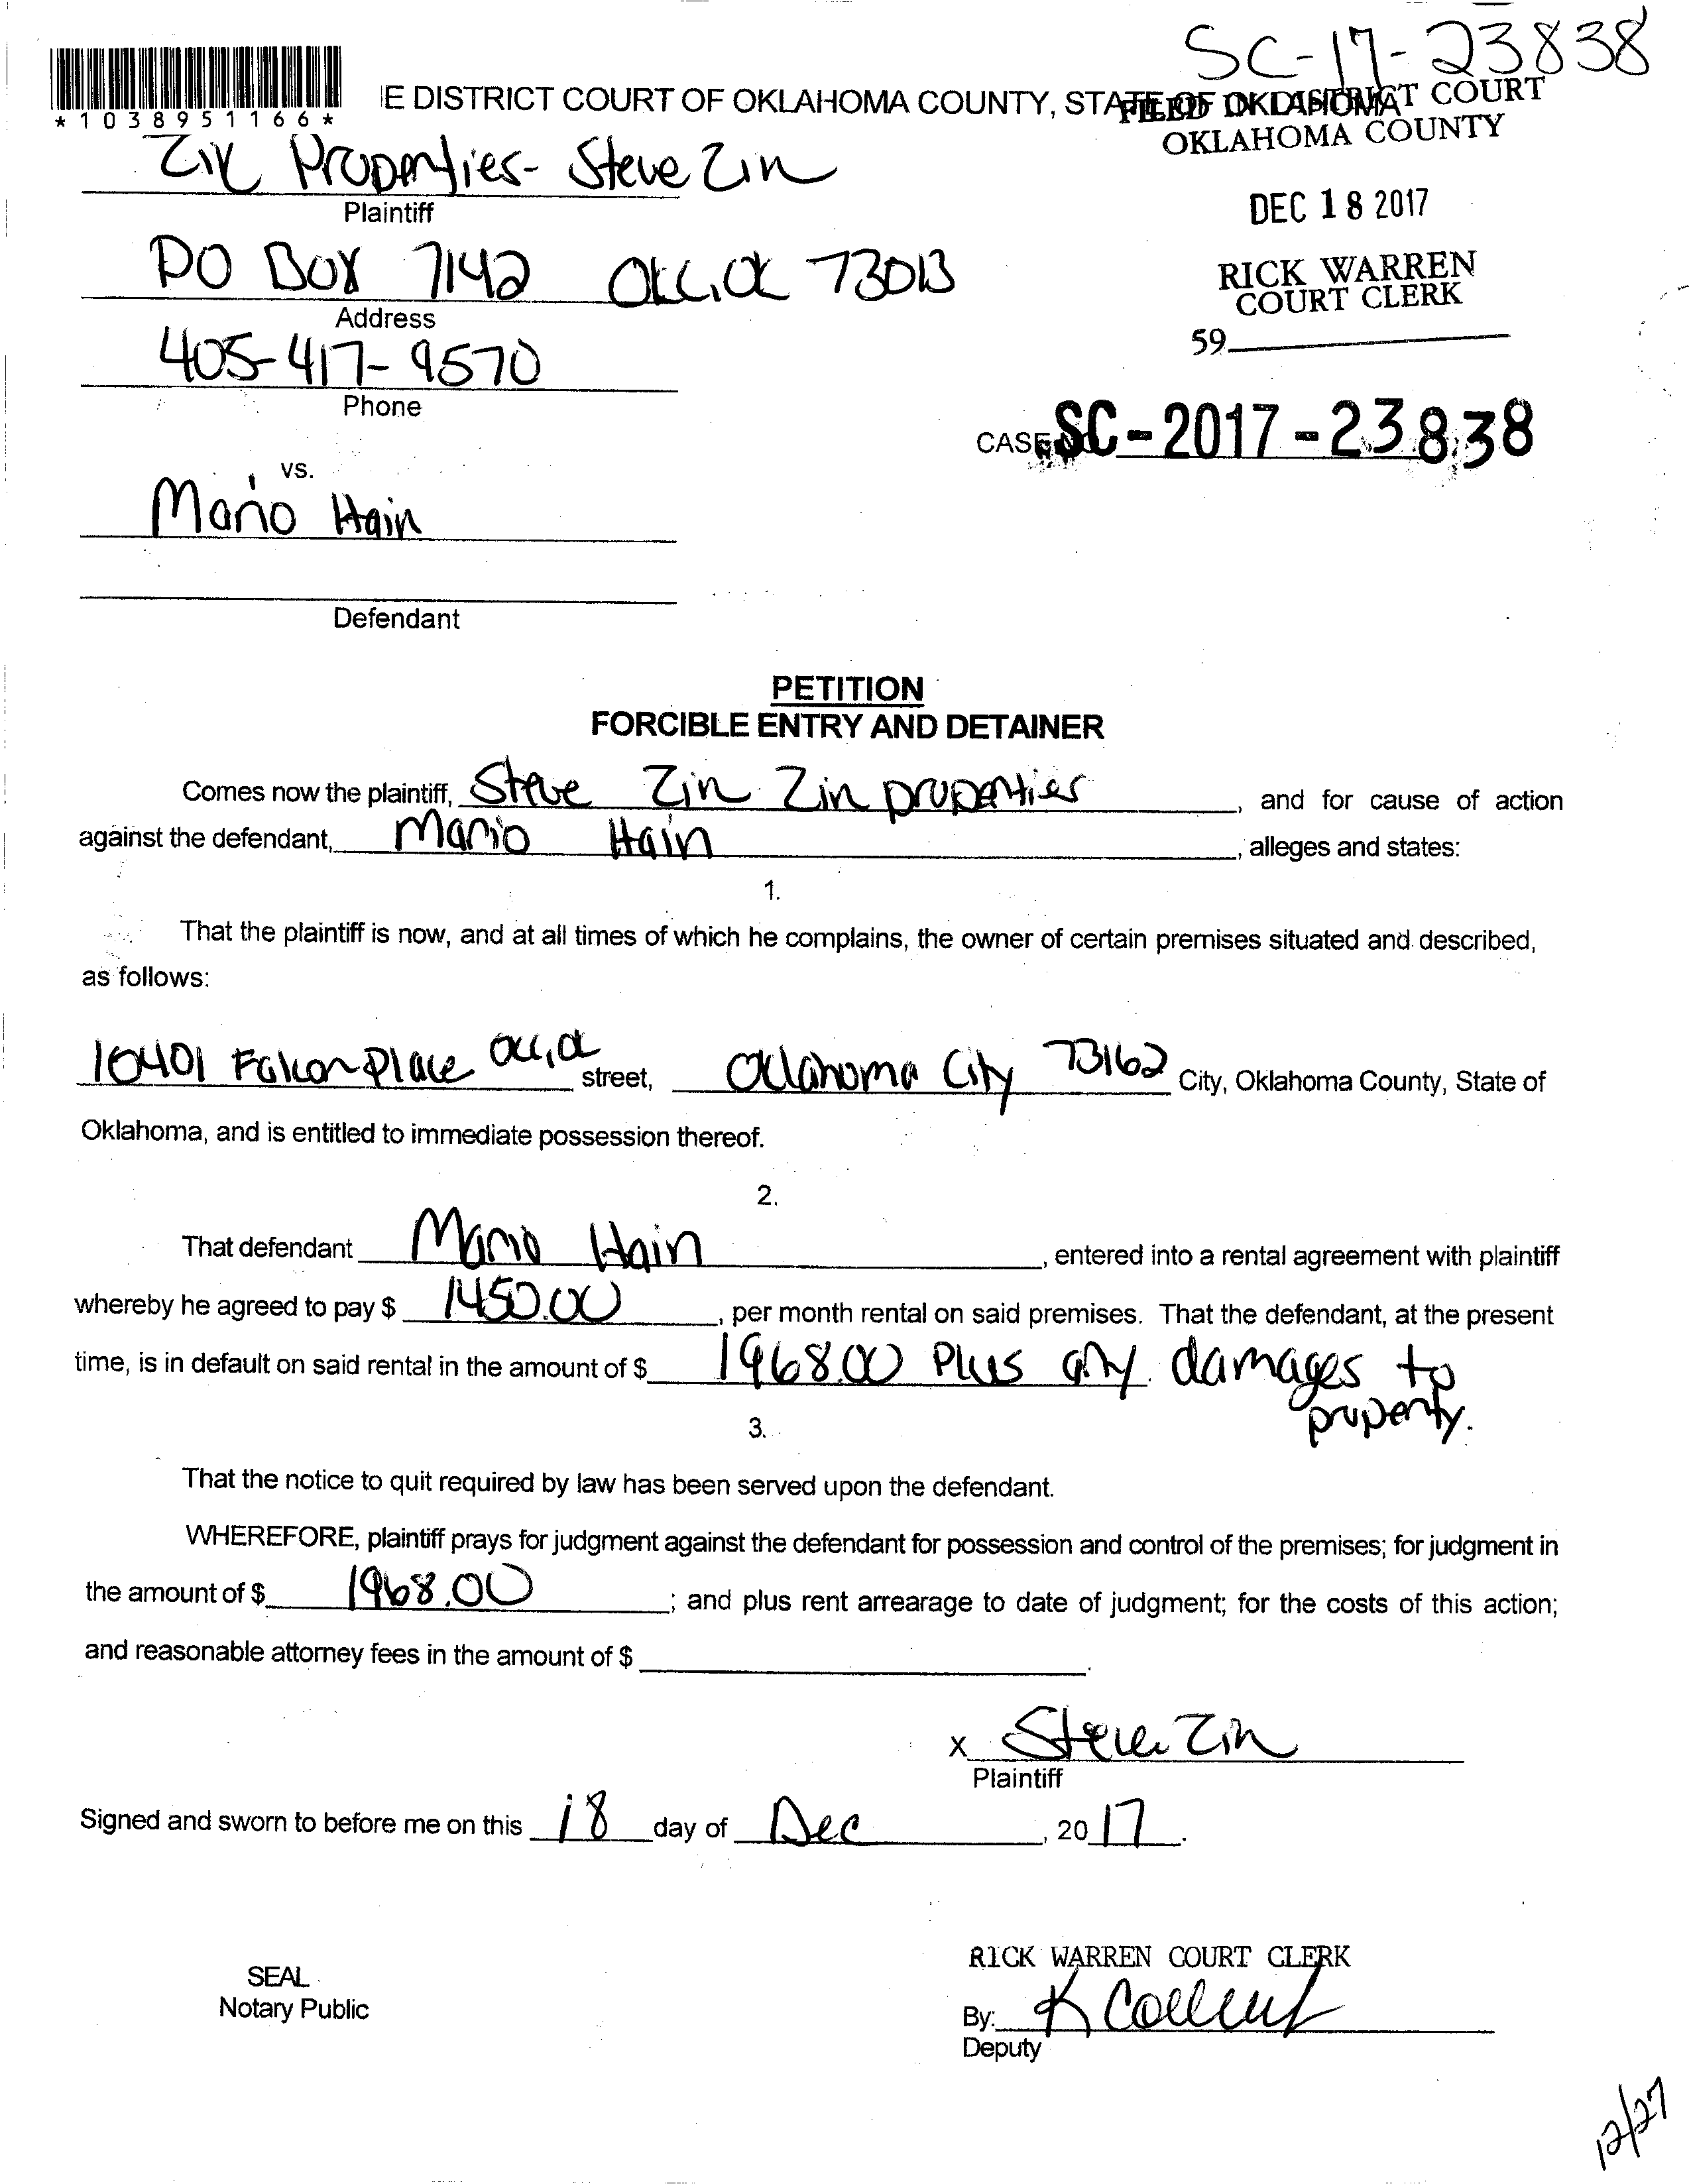 SC-17-23838
*1038951166*
E DISTRICT COURT OF OKLAHOMA COUNTY, STATE OF OKLAHOMA
FILED IN DISTRICT COURT
OKLAHOMA COUNTY
Properties- Steve Zin
Plaintiff
DEC 18 2017
PO Box 7142 OKC, OK 73013
Address
RICK WARREN
COURT CLERK
405-417-9570
Phone
59
CASE NO. SC-2017-23838
vs.
Mario Hain
Defendant
PETITION
FORCIBLE ENTRY AND DETAINER
Comes now the plaintiff, Steve Zin Zin properties, and for cause of action
against the defendant, Mario Hain, alleges and states:
1.
That the plaintiff is now, and at all times of which he complains, the owner of certain premises situated and described,
as follows:
10401 Falcon Place OKC, OK street, Oklahoma City 73162 City, Oklahoma County, State of
Oklahoma, and is entitled to immediate possession thereof.
2.
That defendant Mario Hain, entered into a rental agreement with plaintiff
whereby he agreed to pay $ 1450.00, per month rental on said premises. That the defendant, at the present
time, is in default on said rental in the amount of $ 1968.00 Plus any damages to
property.
3.
That the notice to quit required by law has been served upon the defendant.
WHEREFORE, plaintiff prays for judgment against the defendant for possession and control of the premises; for judgment in
the amount of $ 1968.00; and plus rent arrearage to date of judgment; for the costs of this action;
and reasonable attorney fees in the amount of $
X Steve Zin
Plaintiff
Signed and sworn to before me on this 18 day of Dec, 2017.
RICK WARREN COURT CLERK
SEAL
Notary Public
By: K
Deputy
12/27